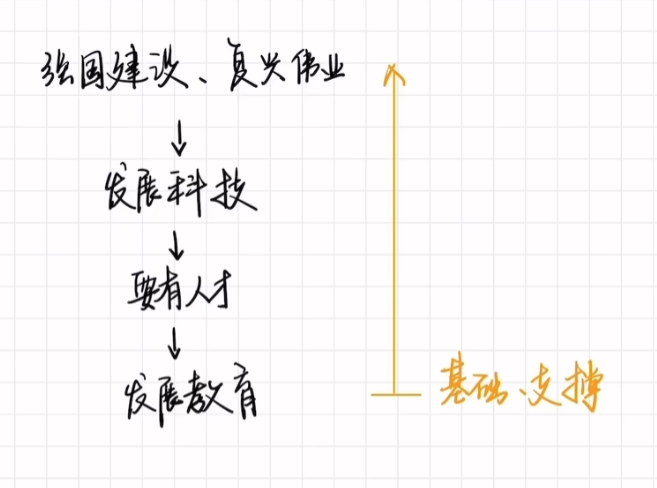 强国建设、复兴伟业
↓
发展科技
↓
要有人才
↓
发展教育
基础、支撑